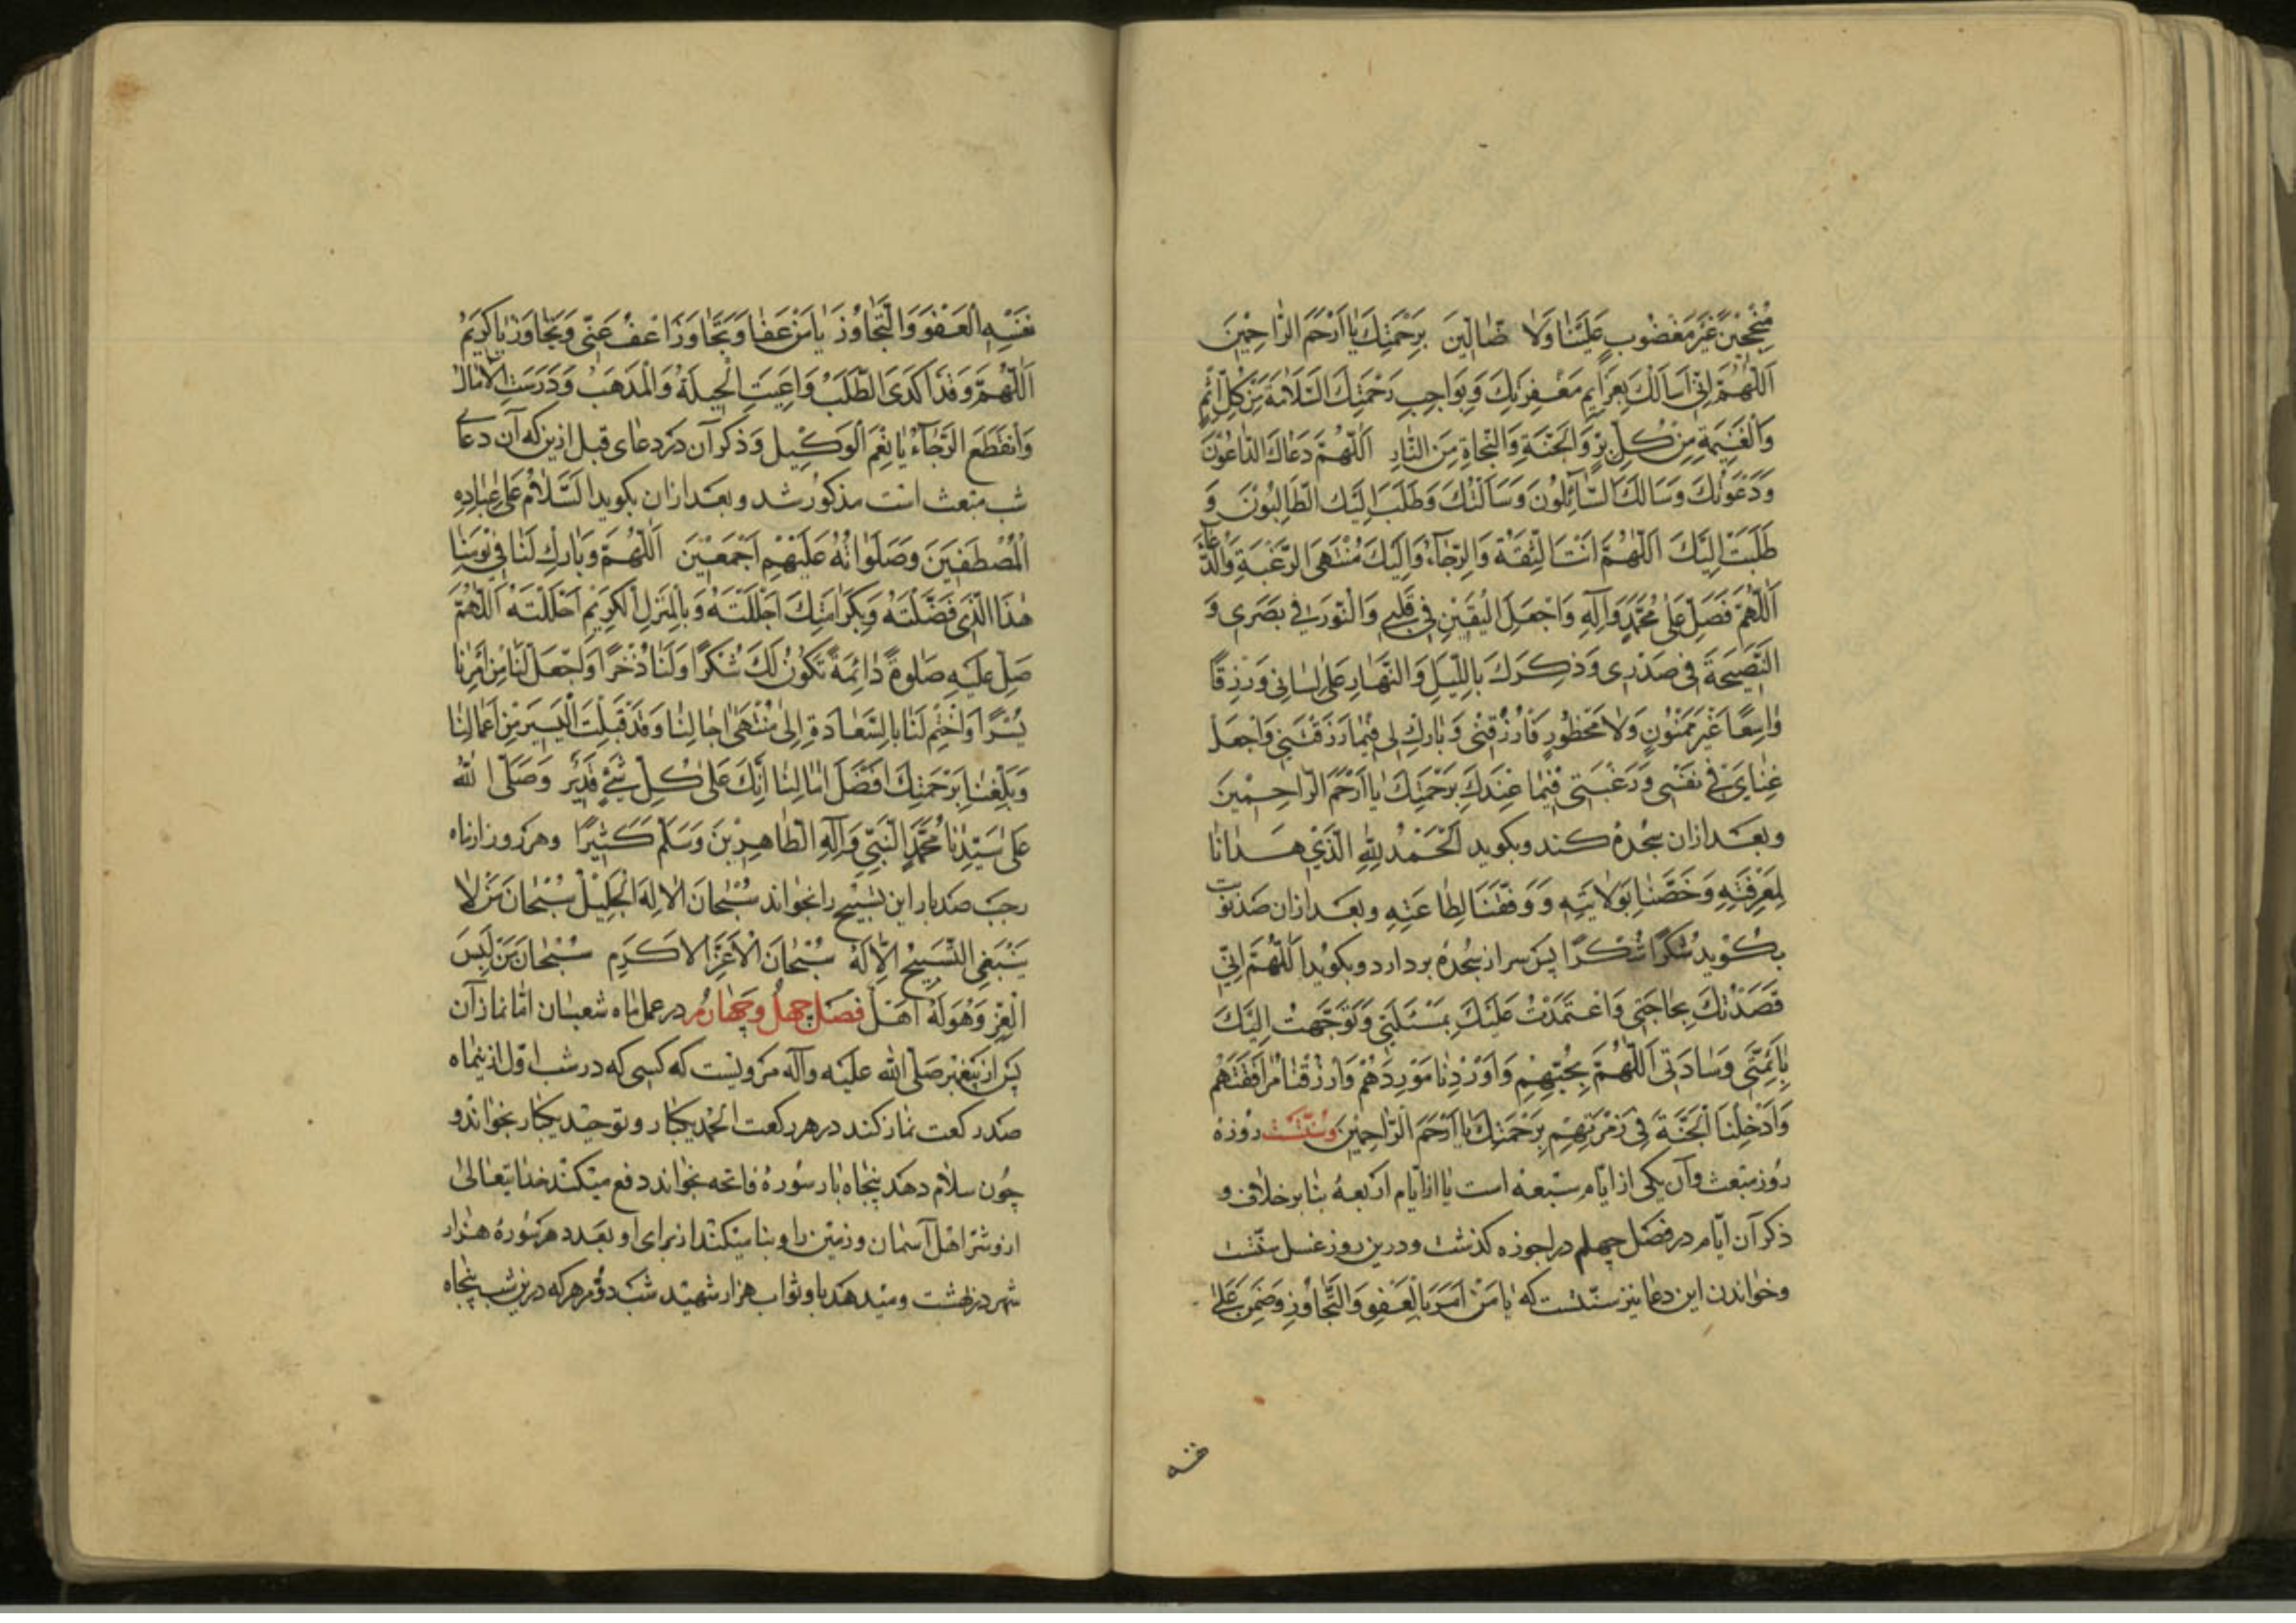 مُنْجِحِينَ غَيْرَ مَغْضُوبٍ عَلَيْنَا وَلَا ضَالِّينَ بِرَحْمَتِكَ يَا اَرْحَمَ الرَّاحِمِينَ
اَللّٰهُمَّ اِنِّي اَسْاَلُكَ بِعَزَايِمِ مَغْفِرَتِكَ وَبِوَاجِبِ رَحْمَتِكَ السَّلَامَةَ مِنْ كُلِّ اِثْمٍ
وَالْغَنِيمَةَ مِنْ كُلِّ بِرٍّ وَالْجَنَّةِ وَالنَّجَاةِ مِنَ النَّارِ اَللّٰهُمَّ دَعَاكَ الدَّاعُونَ
وَدَعَوْتُكَ وَسَاَلَكَ السَّآئِلُونَ وَسَاَلْتُكَ وَطَلَبَ اِلَيْكَ الطَّالِبُونَ وَ
طَلَبْتُ اِلَيْكَ اَللّٰهُمَّ اَنْتَ الثِّقَةُ وَالرَّجَآءُ وَاِلَيْكَ مُنْتَهَى الرَّغْبَةِ وَالدُّعَاءِ
اَللّٰهُمَّ فَصَلِّ عَلٰى مُحَمَّدٍ وَاٰلِهِ وَاجْعَلِ الْيَقِينَ فِي قَلْبِي وَالنُّورَ فِي بَصَرِي وَ
النَّصِيحَةَ فِي صَدْرِي وَذِكْرَكَ بِاللَّيْلِ وَالنَّهَارِ عَلٰى لِسَانِي وَرِزْقًا
وَاسِعًا غَيْرَ مَمْنُونٍ وَلَا مَحْظُورٍ فَارْزُقْنِي وَبَارِكْ لِي فِيمَا رَزَقْتَنِي وَاجْعَلْ
غِنَايَ فِي نَفْسِي وَرَغْبَتِي فِيمَا عِنْدَكَ بِرَحْمَتِكَ يَا اَرْحَمَ الرَّاحِمِينَ
وبعد ازان سجده كند وبكويد اَلْحَمْدُ لِلّٰهِ الَّذِي هَدَانَا
لِمَعْرِفَتِهِ وَخَصَّنَا بِوَلَايَتِهِ وَوَفَّقَنَا لِطَاعَتِهِ وبعد ازان صد نوبت
بكويد شُكْرًا شُكْرًا پس سر از سجده بردارد وبكويد اَللّٰهُمَّ اِنِّي
قَصَدْتُكَ بِحَاجَتِي وَاعْتَمَدْتُ عَلَيْكَ بِمَسْئَلَتِي وَتَوَجَّهْتُ اِلَيْكَ
بِاَئِمَّتِي وَسَادَتِي اَللّٰهُمَّ بِحُبِّهِمْ وَاَوْرِدْنَا مَوْرِدَهُمْ وَارْزُقْنَا مُرَافَقَتَهُمْ
وَاَدْخِلْنَا الْجَنَّةَ فِي زُمْرَتِهِمْ بِرَحْمَتِكَ يَا اَرْحَمَ الرَّاحِمِينَ وسنّتست روزه
روز مبعث وآن يكى از ايام سبعه است يا از ايام اربعه بنا بر خلاف و
ذكر آن ايّام در فصل چهلم در اجوزه كذشت ودرين روز غسل سنّتست
وخواندن اين دعا نيز سنّتست كه يَا مَنْ اَمَرَ بِالْعَفْوِ وَالتَّجَاوُزِ وَضَمِنَ عَلٰى
نفسه
نَفْسِهِ الْعَفْوَ وَالتَّجَاوُزَ يَا مَنْ عَفَا وَتَجَاوَزَ اعْفُ عَنِّي وَتَجَاوَزْ يَا كَرِيمُ
اَللّٰهُمَّ وَقَدْ اَكْدَى الطَّلَبُ وَاَعْيَتِ الْحِيلَةُ وَالْمَذْهَبُ وَدَرَسَتِ الْاٰمَالُ
وَانْقَطَعَ الرَّجَآءُ يَا نِعْمَ الْوَكِيلُ وذكر آن در دعاى قبل ازين كه آن دعاى
شب مبعث است مذكور شد وبعد ازان بكويد اَلسَّلَامُ عَلٰى عِبَادِهِ
الْمُصْطَفَيْنَ وَصَلَوَاتُهُ عَلَيْهِمْ اَجْمَعِينَ اَللّٰهُمَّ وَبَارِكْ لَنَا فِي يَوْمِنَا
هٰذَا الَّذِي فَضَّلْتَهُ وَبِكَرَامَتِكَ اَجْلَلْتَهُ وَبِالْمَنْزِلِ الْكَرِيمِ اَحْلَلْتَهُ اَللّٰهُمَّ
صَلِّ عَلَيْهِ صَلٰوةً دَائِمَةً تَكُونُ لَكَ شُكْرًا وَلَنَا ذُخْرًا وَاجْعَلْ لَنَا مِنْ اَمْرِنَا
يُسْرًا وَاخْتِمْ لَنَا بِالسَّعَادَةِ اِلٰى مُنْتَهٰى اٰجَالِنَا وَقَدْ قَبِلْتَ الْيَسِيرَ مِنْ اَعْمَالِنَا
وَبَلِّغْنَا بِرَحْمَتِكَ اَفْضَلَ اٰمَالِنَا اِنَّكَ عَلٰى كُلِّ شَيْءٍ قَدِيرٌ وَصَلَّى اللّٰهُ
عَلٰى سَيِّدِنَا مُحَمَّدٍ النَّبِيِّ وَاٰلِهِ الطَّاهِرِينَ وَسَلَّمَ كَثِيرًا وهر روز ازماه
رجب صد بار اين تسبيح را بخواند سُبْحَانَ الْاِلٰهِ الْجَلِيلِ سُبْحَانَ مَنْ لَا
يَنْبَغِي التَّسْبِيحُ اِلَّا لَهُ سُبْحَانَ الْاَعَزِّ الْاَكْرَمِ سُبْحَانَ مَنْ لَبِسَ
الْعِزَّ وَهُوَ لَهُ اَهْلٌ فصل چهل وچهارم در عمل ماه شعبان امّا نماز آن
پس از پيغمبر صلّى الله عليه وآله مرويست كه كسى كه در شب اوّل ازينماه
صد ركعت نماز كند در هر ركعت الحمد يكبار وتوحيد يكبار بخواند و
چون سلام دهد پنجاه بار سورهٔ فاتحه بخواند دفع ميكند خدايتعالى
ازو شرّ اهل آسمان وزمين را وبنا ميكند از براى او بعدد هر سوره هزار
شهر در بهشت وميدهد باو ثواب هزار شهيد شب دوّم هر كه درين شب پنجاه